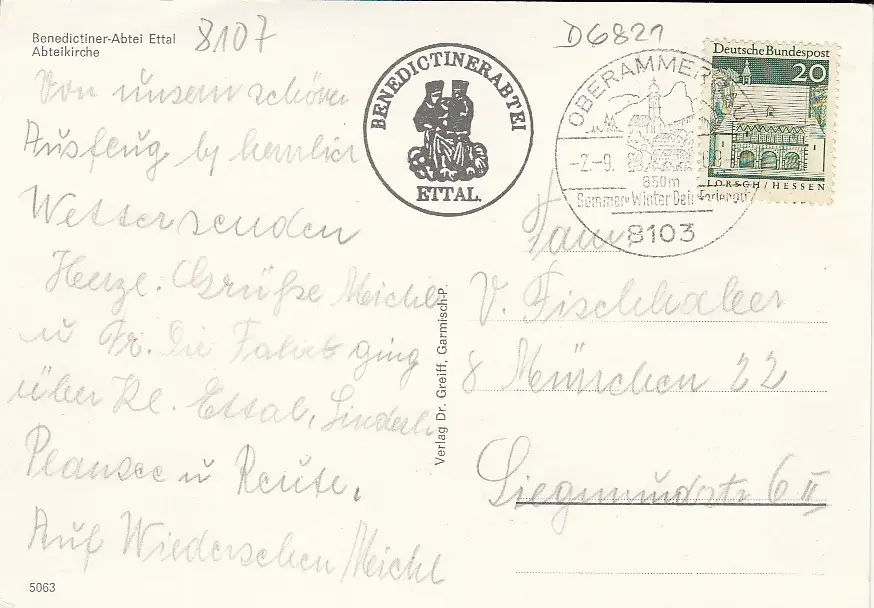 Benedictiner-Abtei Ettal
Abteikirche
8107
D6821
BENEDICTINERABTEI
ETTAL.
OBERAMMERGAU
-2.-9.
850m
Sommer + Winter Dein Ferienort
8103
Deutsche Bundespost
20
LORSCH/HESSEN
Von unserm schönen
Ausflug b. herrlich
Wetter senden
Herzl. Grüße Meichl
u Fr. Die Fahrt ging
über Kl. Ettal, Linderh.
Plansee u Reute.
Auf Wiedersehen Meichl
Fam.
V. Fischhaber
8 München 22
Siegmundstr 6 II
Verlag Dr. Greiff, Garmisch-P.
5063